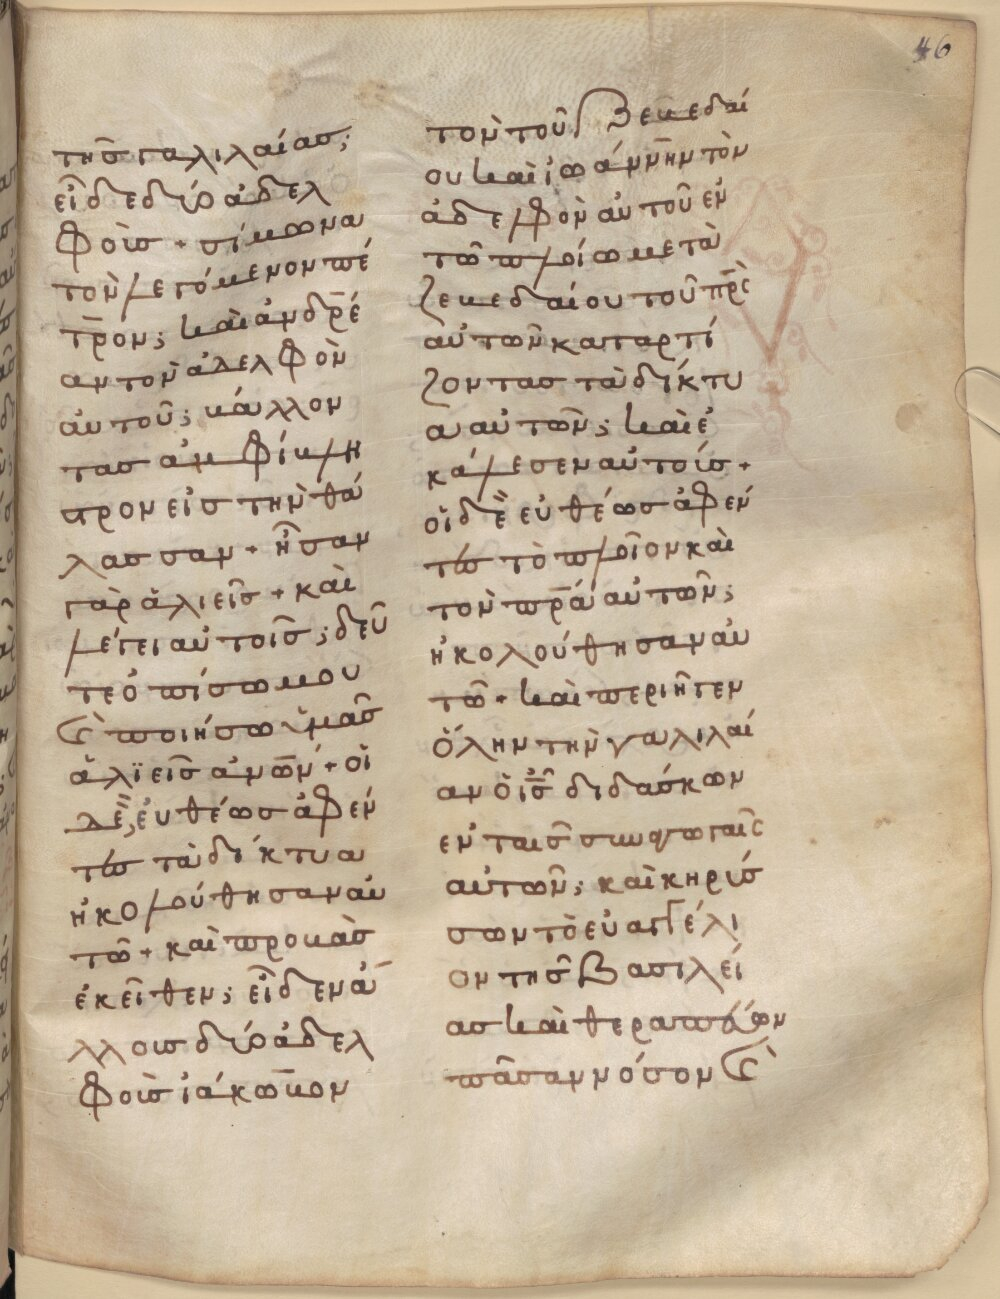 46
τῆσ γαλιλαίασ;
εἶδε δύο ἀδελ
φοὺσ + σίμωνα
τὸν λεγόμενον πέ
τρ̅ον; καὶ ἀνδρέ
αν τὸν ἀδελφὸν
ἀυτοῦ; βάλλον
τασ ἀμφίβλη
στρον εἰσ τὴν θά
λασσαν + ἦσαν
γὰρ ἁλιεῖσ + καὶ
λέγει αὐτοῖσ; δεῦ
τε ὀπίσω μου
ϗ̀ ποιήσω ὑμᾶσ
ἁλϊεῖσ ἀνω̅ν + οἱ
δὲ, ἐυθέωσ ἀφέν
τεσ τὰ δίκτυα
ἠκολούθησαν αὐ
τῶ + καὶ προβὰσ
ἐκεῖθεν; εἶδεν ἄ
λλουσ δύο ἀδελ
φοὺσ ἰάκωβον
τὸν τοῦ Ζεβεδαί
ου καὶ ἰωάννην τὸν
ἀδελφὸν αυτοῦ εν
τῶ πλοίω μετὰ
ζεβεδαίου τοῦ πρ̅ς
αὐτῶν καταρτί
ζοντασ τὰ δίκτυ
α αὐτῶν; καὶ ἐ
κάλεσεν αὐτούσ +
οἱ δὲ εὐθέωσ ἀφέν
τεσ τὸ πλοῖον καὶ
τὸν πρ̅ά αὐτῶν;
ἠκολούθησαν αὐ
τῶ + καὶ περιῆγεν
ὅλην τὴν γαλιλαί
αν ὁ ις̅ διδάσκων
εν ταισ συναγωγαῖς
αὐτῶν; καὶ κηρύσ
σων τὸ εὐαγγέλι
ον τῆσ βασιλεί
ασ καὶ θεραπεύων
πᾶσαν νόσον ϗ̀